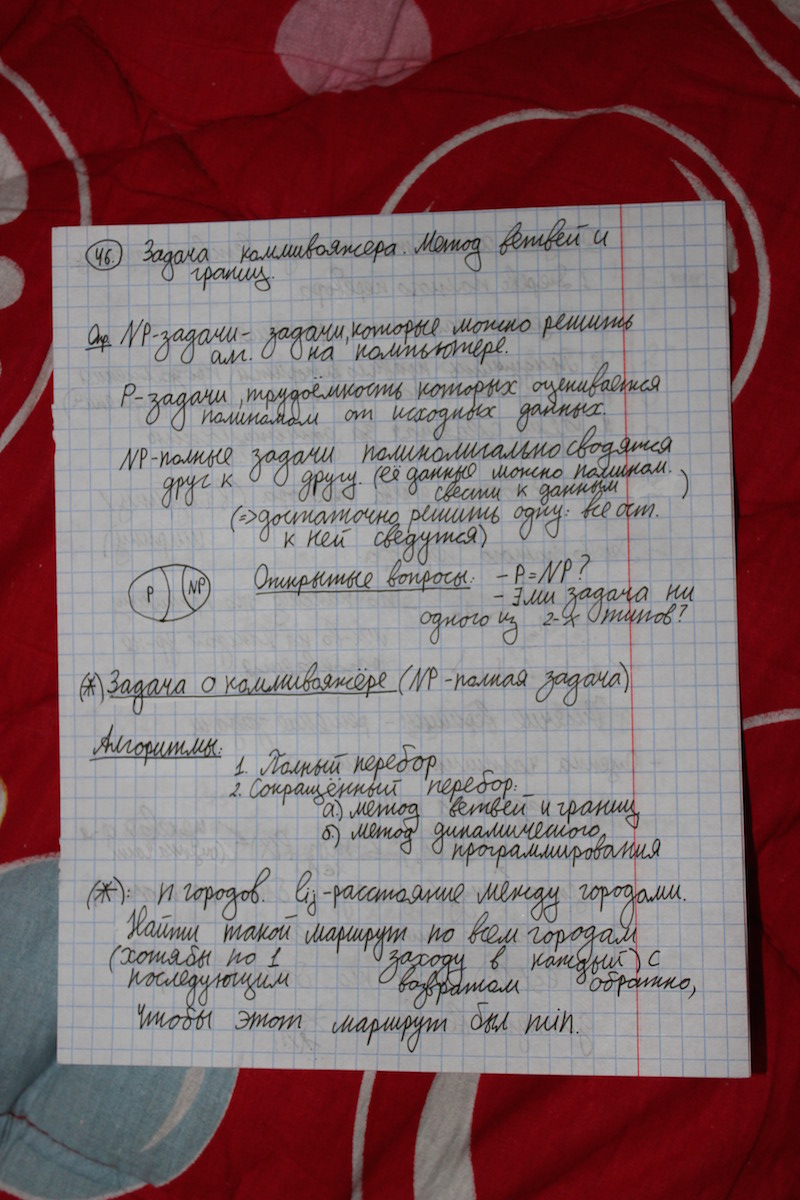 46. Задача коммивояжера. Метод ветвей и
границ.
Опр NP-задачи- задачи, которые можно решить
алг. на компьютере.
P-задачи, трудоёмкость которых оценивается
полиномом от исходных данных.
NP-полные задачи полиномигально сводятся
друг к другу. (её данные можно полином.
свести к данным )
(=> достаточно решить одну: все ост.
к ней сведутся)
P NP
Открытые вопросы: - P=NP?
- ∃ ли задача ни
одного из 2-х типов?
(*) Задача о коммивояжёре (NP-полная задача)
Алгоритмы:
1. Полный перебор
2. Сокращённый перебор:
а) метод ветвей и границ
б) метод динамического
программирования
(*): n городов. lij-расстояние между городами.
Найти такой маршрут по всем городам
(хотябы по 1 заходу в каждый) с
последующим возвратом обратно,
чтобы этот маршрут был min.